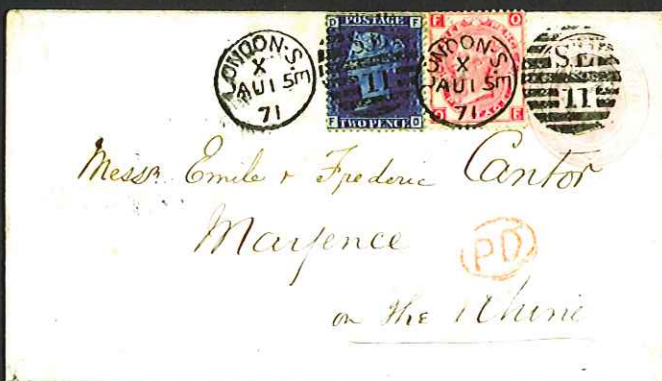 LONDON·S.E
X
AU 15
71
D POSTAGE F
S.E
11
F TWO PENCE D
LONDON·S.E
X
AU 15
71
F O
O F
S.E
11
Messrs Emile & Frederic Cantor
Mayence
PD
on the Rhine